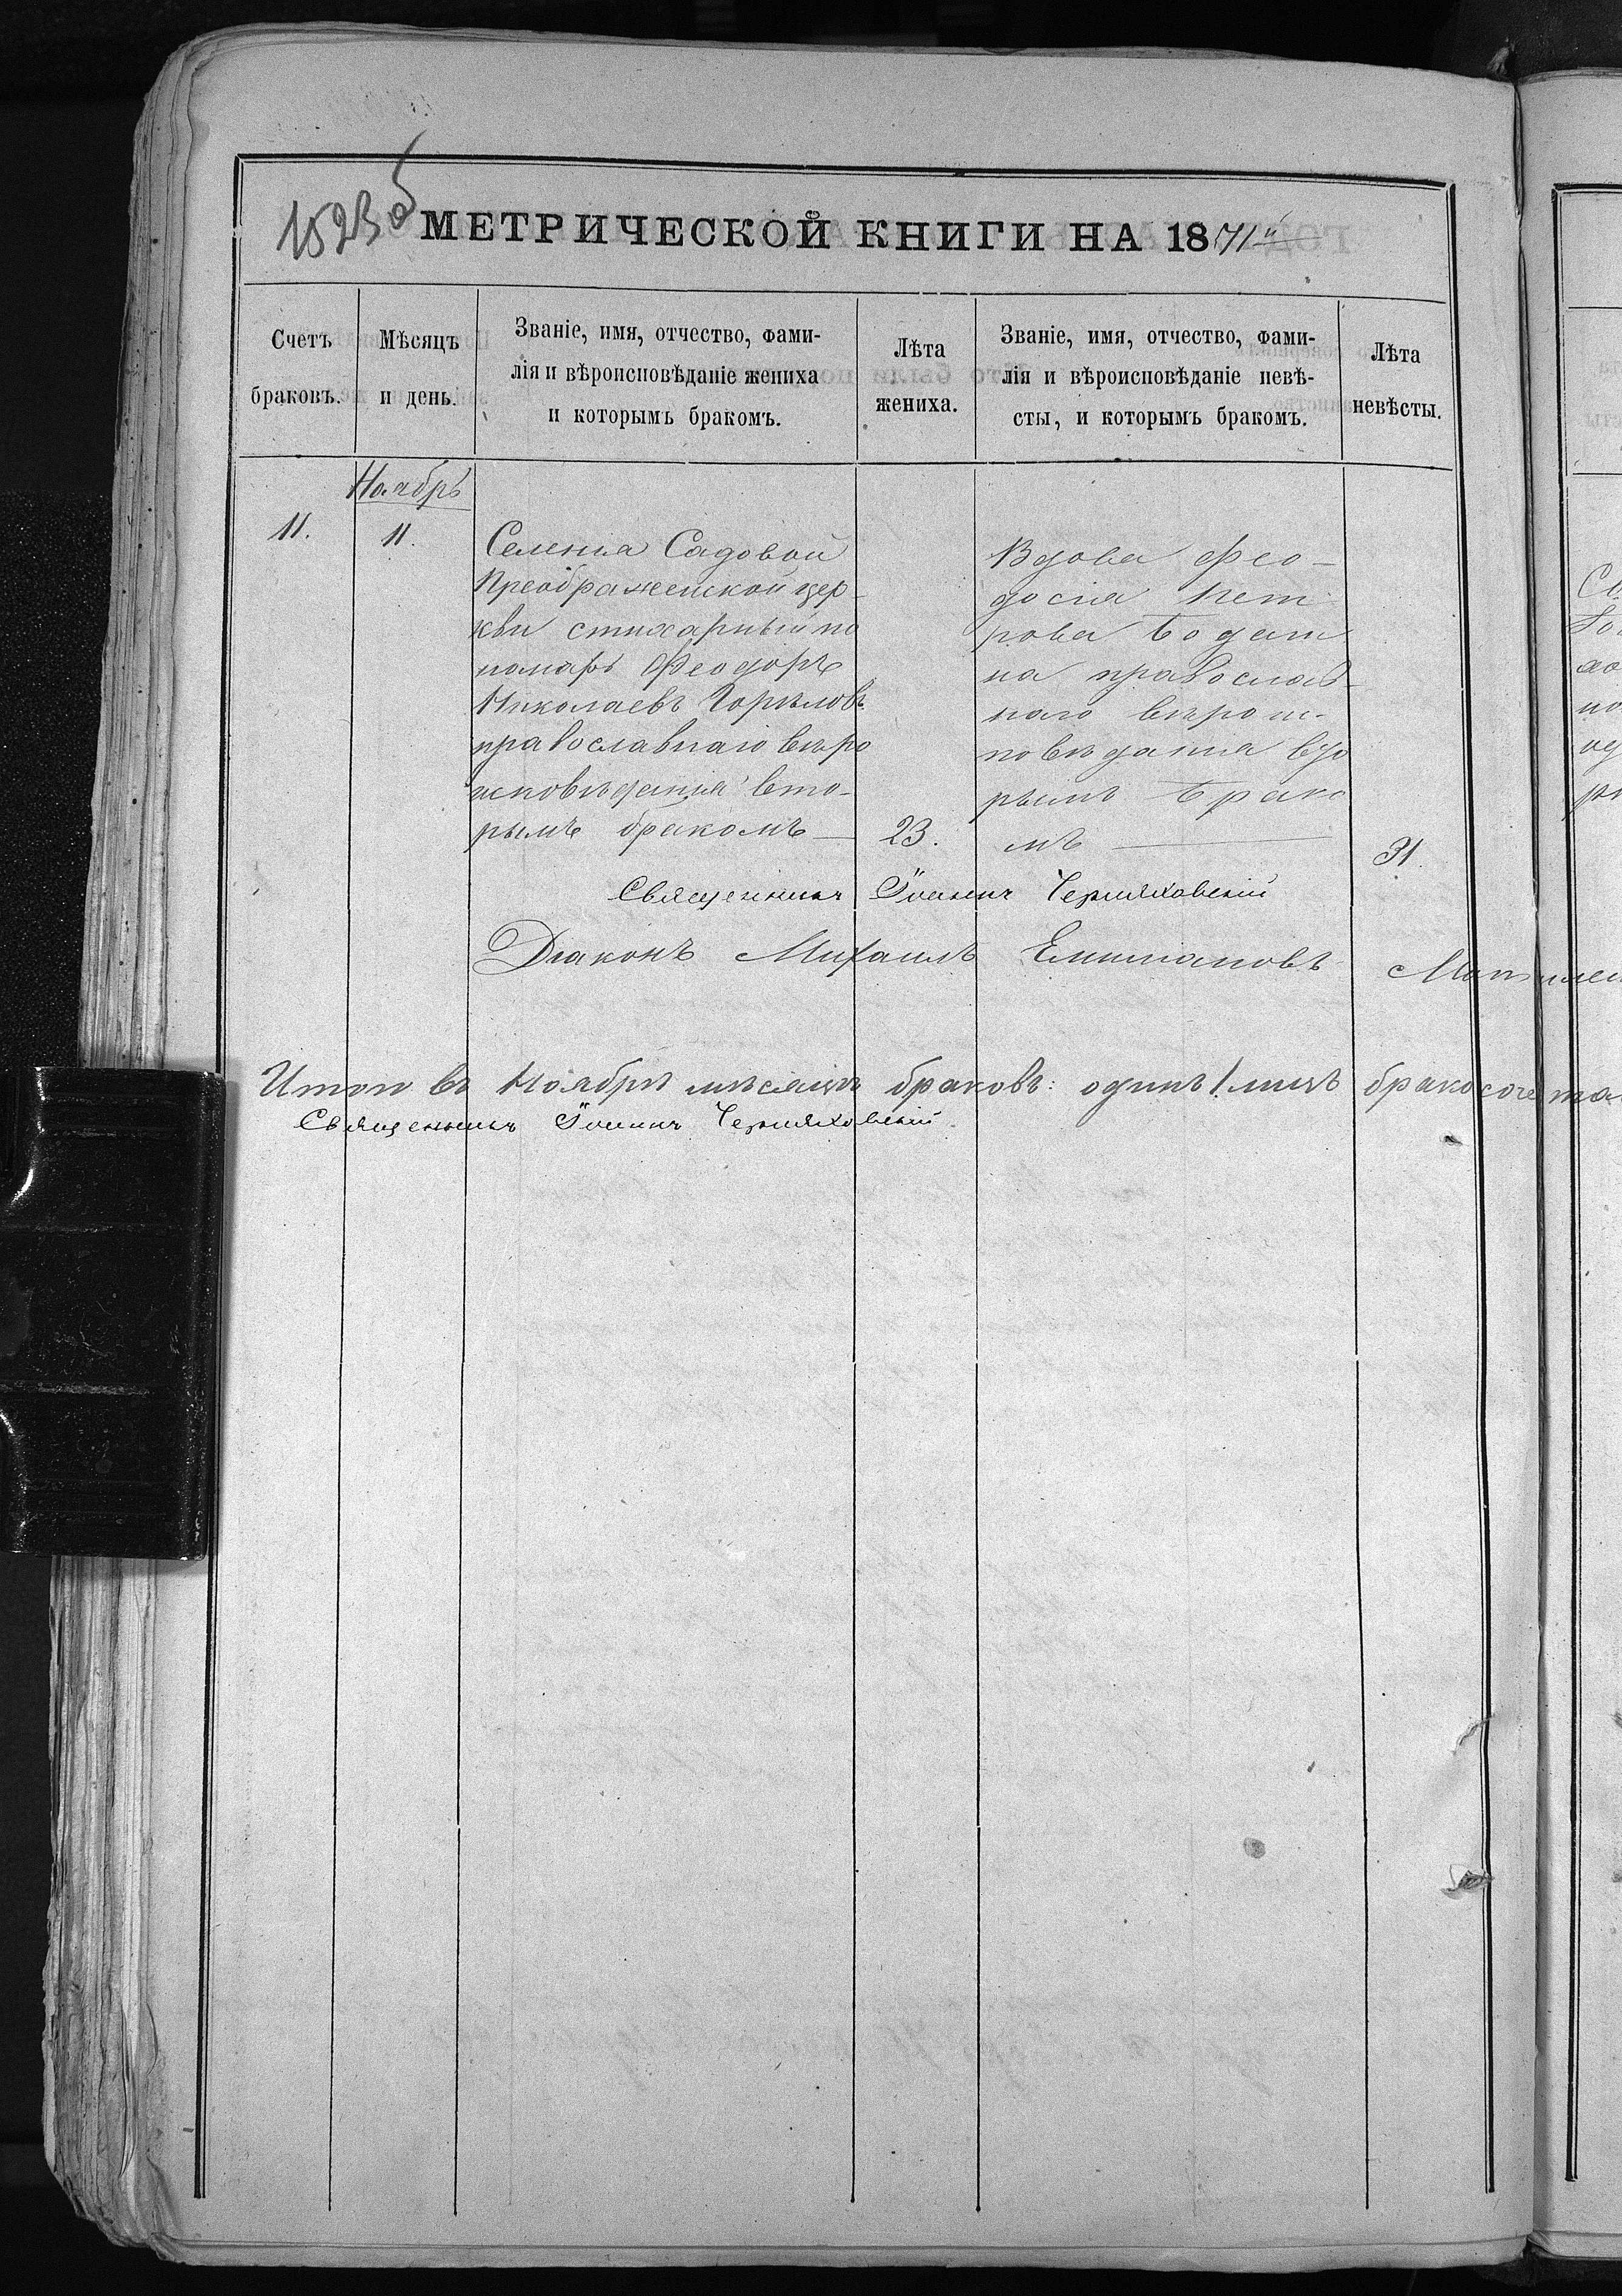 1523об
МЕТРИЧЕСКОЙ КНИГИ НА 1871й
Счетъ браковъ.
Мѣсяцъ и день.
Званіе, имя, отчество, фами-
лія и вѣроисповѣданіе жениха
и которымъ бракомъ.
Лѣта жениха.
Званіе, имя, отчество, фами-
лія и вѣроисповѣданіе невѣ-
сты, и которымъ бракомъ.
Лѣта невѣсты.
Ноябрь
11.
11.
Селенія Садовой
Преображенской цер-
кви стихарный по
номарь Феодоръ
Николаевъ Горѣловъ
православнаго вѣро
исповѣданія вто-
рымъ бракомъ
23.
Вдова Фео-
досія Пет
рова
на православ-
наго вѣроис-
повѣданія вто
рымъ брако
мъ
31.
Священникъ Іоаннъ Черняховскій
Діаконъ Михаилъ Емильановъ
Итого въ Ноябрѣ мѣсяцѣ браковъ: одинъ 1 лицъ бракосочета
Священникъ Іоаннъ Черняховскій.